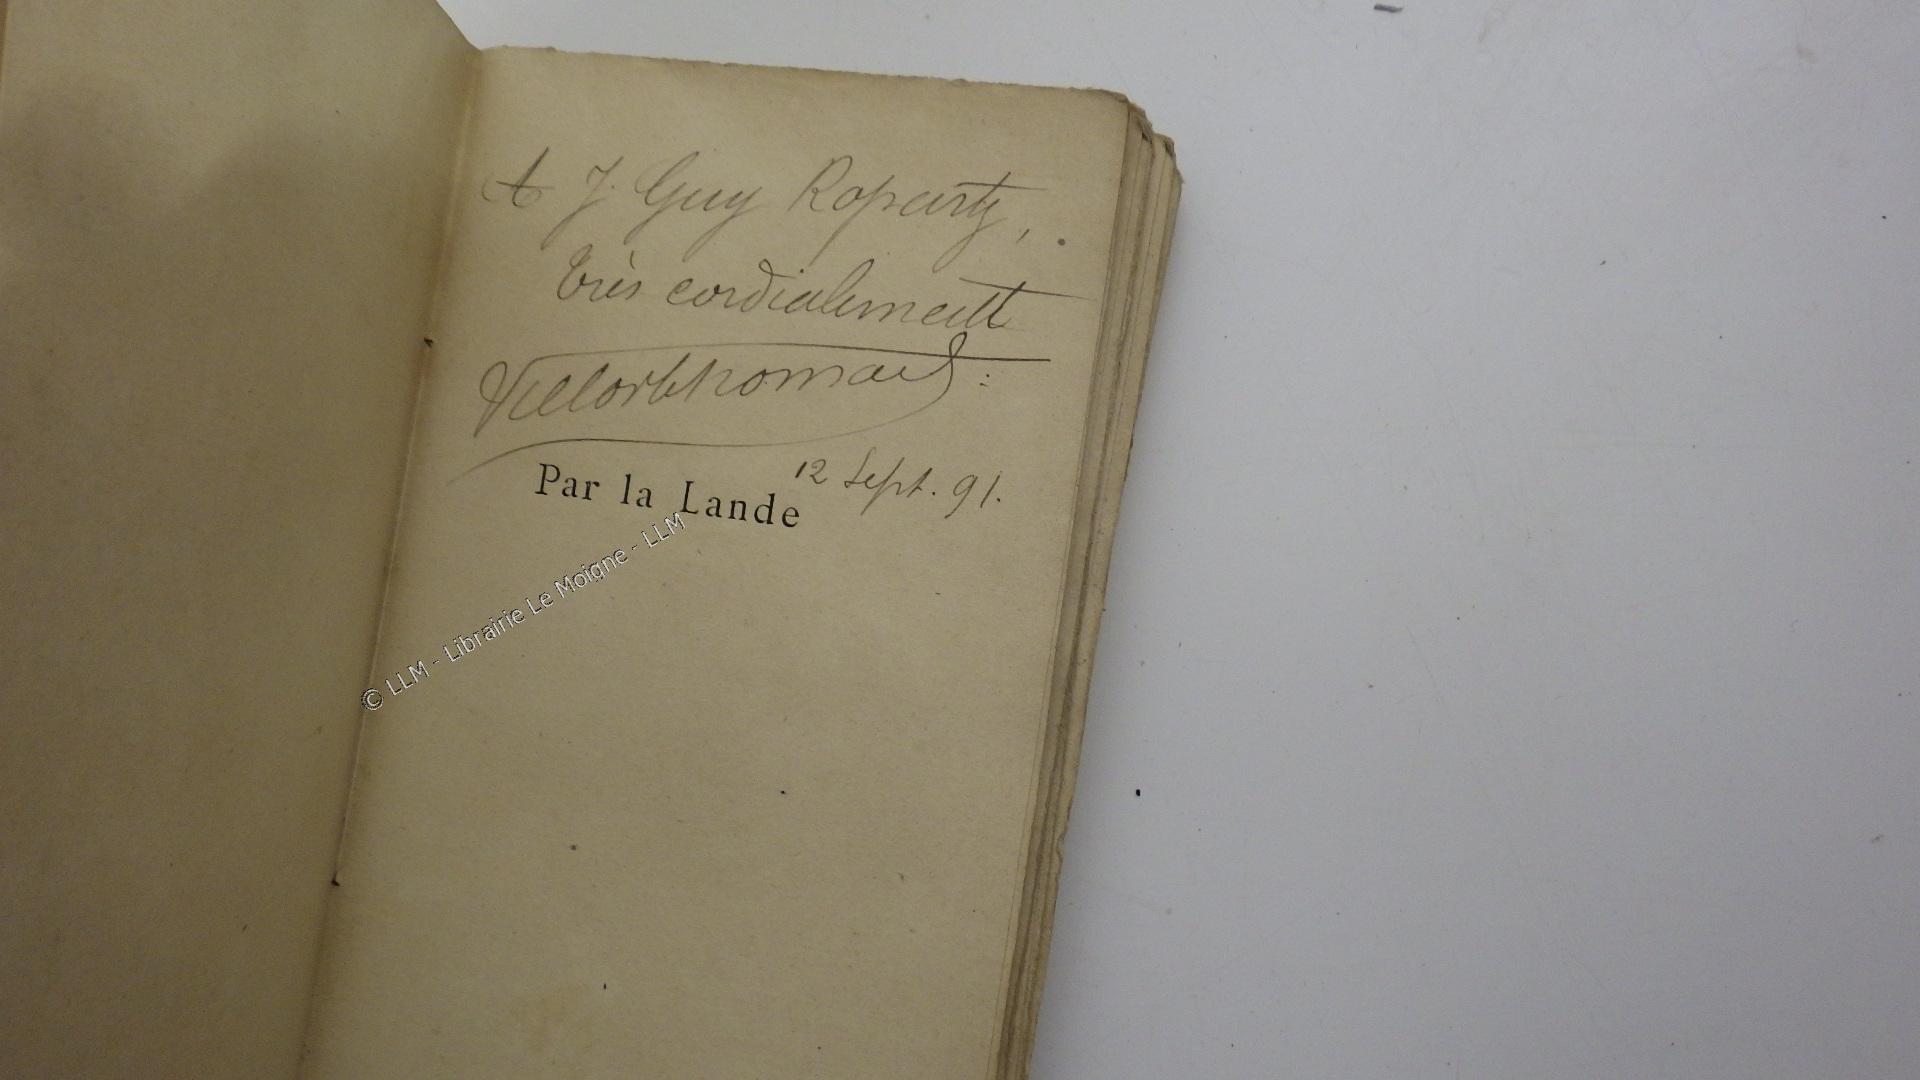 A J. Guy Ropartz,
très cordialement
12 Sept. 91.
Par la Lande
© LLM - Librairie Le Moigne - LLM